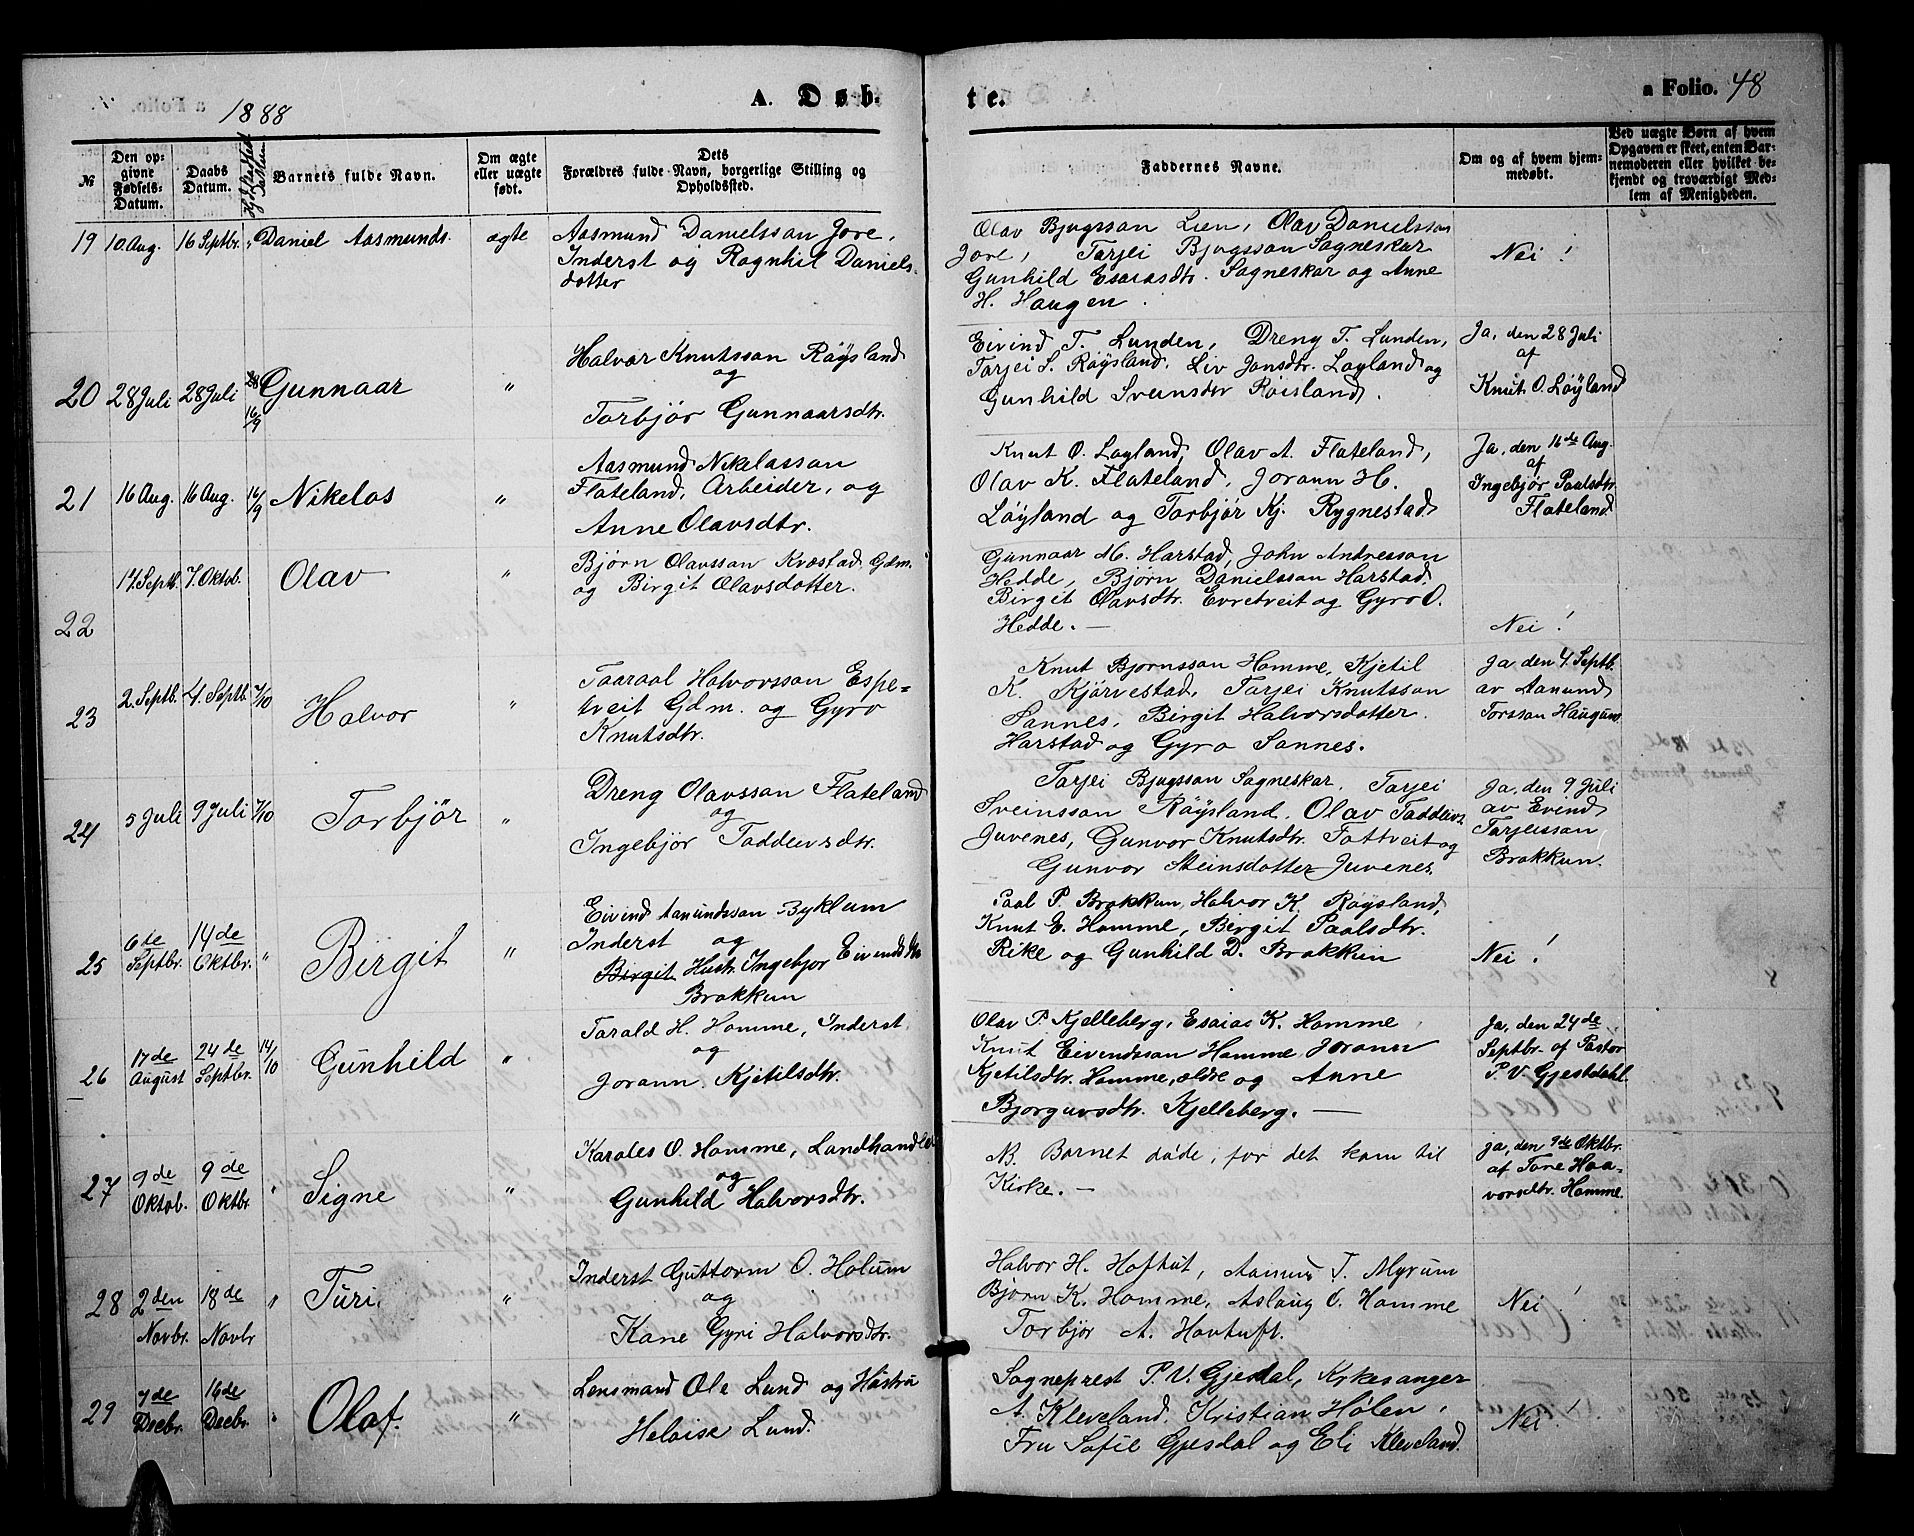 1888
A. Døb-
te.
a Folio. 48
№
Den op-
givne
Fødsels-
Datum.
Daabs
Datum.
Barnets fulde Navn.
Om ægte
eller uægte
født.
Dets
Forældres fulde Navn, borgerlige Stilling og
Opholdssted.
Faddernes Navne.
Om og af hvem hjem-
medøbt.
Ved uægte Børn af hvem
Opgaven er skeet, enten Bar-
nemoderen eller hvilket be-
kjendt og troværdigt Med-
lem af Menigheden.
19 10 Aug. 16 Septbr. " Daniel Aasmunds. ægte
Aasmund Danielsson Jore,
Inderst og Ragnhil Daniels-
dotter
Olav Bjugsson Lien, Olav Danielsson
Jore, Tarjei Bjugsson Sagneskar
Gunhild Esaiasdtr. Sagneskar og Anne
H. Haugen.
Nei!
20 28 Juli 28 Juli 16/9 Gunnaar "
Halvor Knutsson Røysland
og
Torbjør Gunnaarsdtr.
Eivind T. Lunden, Dreng T. Lunden,
Tarjei S. Røysland, Liv Jonsdtr. Løyland og
Gunhild Svensdtr Røisland.
Ja, den 28 Juli
af
Knut O. Løyland
21 16 Aug. 16 Aug. 16/9 Nikelos "
Aasmund Nikelasson
Flateland, Arbeider, og
Anne Olavsdtr.
Knut O. Løyland, Olav A. Flateland,
Olav K. Flateland, Jorann H.
Løyland og Torbjør Kj. Rygnestad
Ja, den 16de Aug.
af
Ingebjør Paalsdtr.
Flateland
22 14 Septb. 7. Oktob. Olav "
Bjørn Olavsson Kvæstad Gdm.
og Birgit Olavsdotter.
Gunnaar M. Harstad, John Andresson
Hedde, Bjørn Danielsson Harstad,
Birgit Olavsdtr. Evretveit og Gyro O.
Hedde. —
Nei!
23 2. Septb. 4. Septb 7/10 Halvor "
Taaraal Halvorsson Espe-
tveit Gdm. og Gyro
Knutsdtr.
Knut Bjornsson Homme, Kjetil
K. Kjørvestad, Tarjei Knutsson
Sannes, Birgit Halvorsdotter.
Harstad og Gyro Sannes.
Ja, den 4. Septb.
av Aanund
Torsson Haugum
24 5 Juli 9 Juli 7/10 Torbjør "
Dreng Olavsson Flateland
og
Ingebjør Taddeivsdtr.
Tarjei Bjugsson Sagneskar, Tarjei
Sveinsson Røysland, Olav Taddeivs.
Juvenes, Gunvor Knutsdtr. Tattveit og
Gunvor Steinsdotter Juvenes.
Ja, den 9 Juli
av Evind
Tarjeisson
Brokkun.
25 6te Septbr. 14de Oktbr. " Birgit "
Eivind Aanundsson Byklum
Inderst og
Birgit Hustr. Ingebjor Eivendsdtr
Brokkun
Paal P. Brokkun, Halvor K. Røysland,
Knut E. Homme, Birgit Paalsdtr.
Rike og Gunhild D. Brokkun
Nei!
26 17de August 24de Septbr. 14/10 Gunhild "
Tarald H. Homme, Inderst
og
Jorann. Kjetilsdtr.
Olav P. Kjelleberg, Esaias K. Homme
Knut Eivendsson Homme, Jorann
Kjetilsdtr. Homme, ældre og Anne
Bjorguvsdtr. Kjelleberg. —
Ja, den 24de
Septbr. af Pastor
P. V. Gjestdahl.
27 9de Oktob. 9de Oktbr. " Signe "
Karoles O. Homme, Landhandler
og
Gunhild Halvorsdtr.
NB. Barnet døde, før det kom til
Kirke. —
ja, den 9de Oktbr.
af Tone Haa-
vorsdtr. Homme.
28 2den Novbr. 18de Novbr " Turi. "
Inderst Guttorm O. Holum
og
Kone Gyri Halvorsdtr.
Halvor H. Hoftut, Aanun T. Myrum
Bjørn K. Homme, Aslaug O. Homme
Torbjør A. Hovtuft.
Nei!
29 7de Decbr. 16de Decbr. " Olaf. "
Lensmand Ole Lund og Hustru
Heloise Lund.
Sogneprest P. V. Gjesdal, Kirkesanger
A. Kleveland, Kristian Hølen,
Fru Sofie Gjesdal og Eli Kleveland.
Nei!